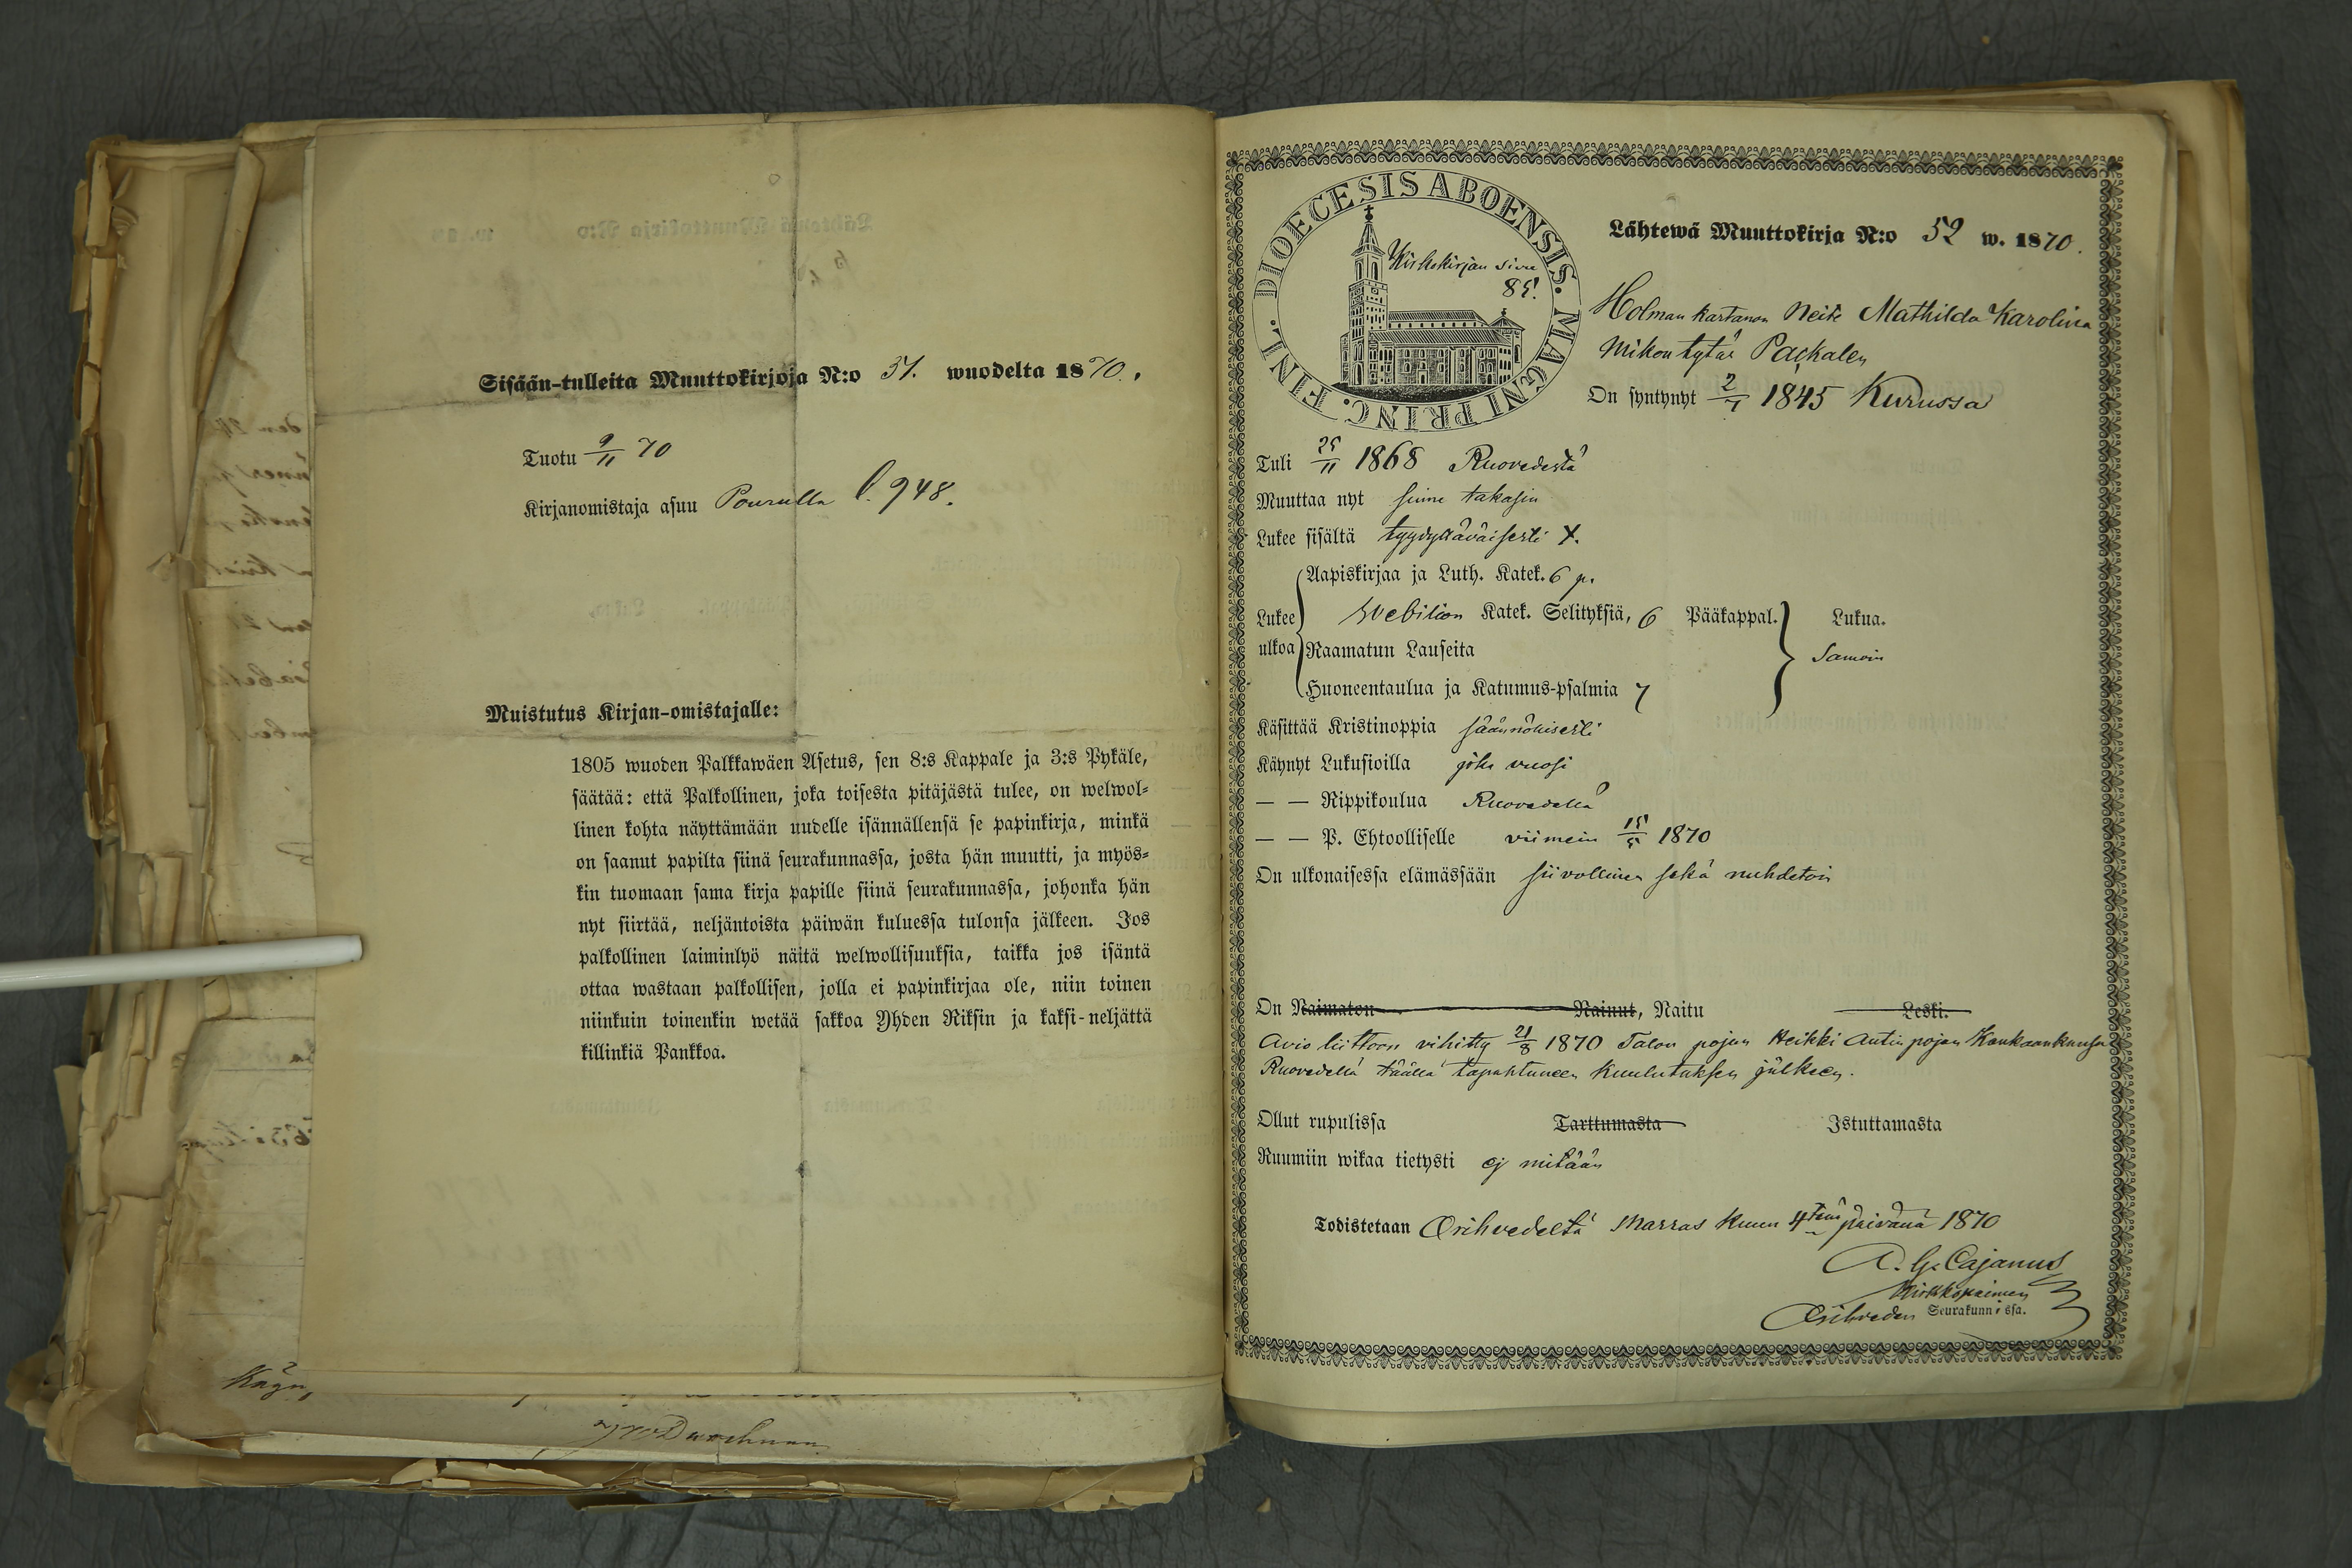 Sisään-tulleita Muuttokirjoja N:o 51. wuodelta 1870.
Tuotu 9/11 70
Kirjanomistaja asuu Pourulla l. 948.
Muistutus Kirjan-omistajalle:
1805 wuoden Palkkawäen Asetus, sen 8:s Kappale ja 3:s Pykäle,
säätää: että Palkollinen, joka toisesta pitäjästä tulee, on welwol-
linen kohta näyttämään uudelle isännällensä se papinkirja, minkä
on saanut papilta siinä seurakunnassa, josta hän muutti, ja myös-
kin tuomaan sama kirja papille siinä seurakunnassa, johonka hän
nyt siirtää, neljäntoista päiwän kuluessa tulonsa jälkeen. Jos
palkollinen laiminlyö näitä welwollisuuksia, taikka jos isäntä
ottaa wastaan palkollisen, jolla ei papinkirjaa ole, niin toinen
niinkuin toinenkin wetää sakkoa Yhden Riksin ja kaksi-neljättä
killinkiä Pankkoa.
DIOECESIS ABOENSIS. MAGNI PRINC. FINL.
Kirkokirjan sivu
85.
Lähtewä Muuttokirja N:o 52 w. 1870.
Holman kartanon Neite Mathilda Karolina
Mikon tytär Packalen
On syntynyt 2/7 1845 Kurussa
Tuli 25/11 1868 Ruovedestä
Muuttaa nyt sinne takasin
Lukee sisältä tyydyttäväisesti X.
Aapiskirjaa ja Luth. Katek. 6 p.
Lukee ulkoa Svebilion Katek. Selityksiä, 6 Pääkappal. Lukua.
Raamatun Lauseita Samoin
Huoneentaulua ja Katumus-psalmia 7
Käsittää Kristinoppia säännöllisesti
Käynyt Lukusioilla joka vuosi
— — Rippikoulua Ruovedellä
— — P. Ehtoolliselle viimein 15/5 1870
On ulkonaisessa elämässään siivollinen sekä nuhdetoin
On Naimaton Nainut, Naitu Leski.
Avio liittoon vihitty 21/8 1870 Talon pojan Heikki Antin pojan
Ruovedellä täällä tapahtuneen kuulutuksen jälkeen.
Ollut rupulissa Tarttumasta Istuttamasta
Ruumiin wikaa tietysti ej mitään
Todistetaan Orihvedeltä Marras kuun 4tenä päivänä 1870
A. G. Cajanus
Kirkkopaimen
Orihveden Seurakunnissa.